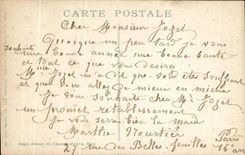 CARTE POSTALE
Cher Monsieur Jozet
Quoique un peu tard je vous
souhaite une bonne année une bonne santé
et tout ce que vous désirez
Mme Jozet m'a dit que vous étiez souffrant
et que vous alliez de mieux en mieux
Je vous souhaite cher Mr Jozet
un prompt rétablissement
Je vous serre bien la main
Marthe Nourtier
27 rue des Belles-feuilles Paris
16e arr